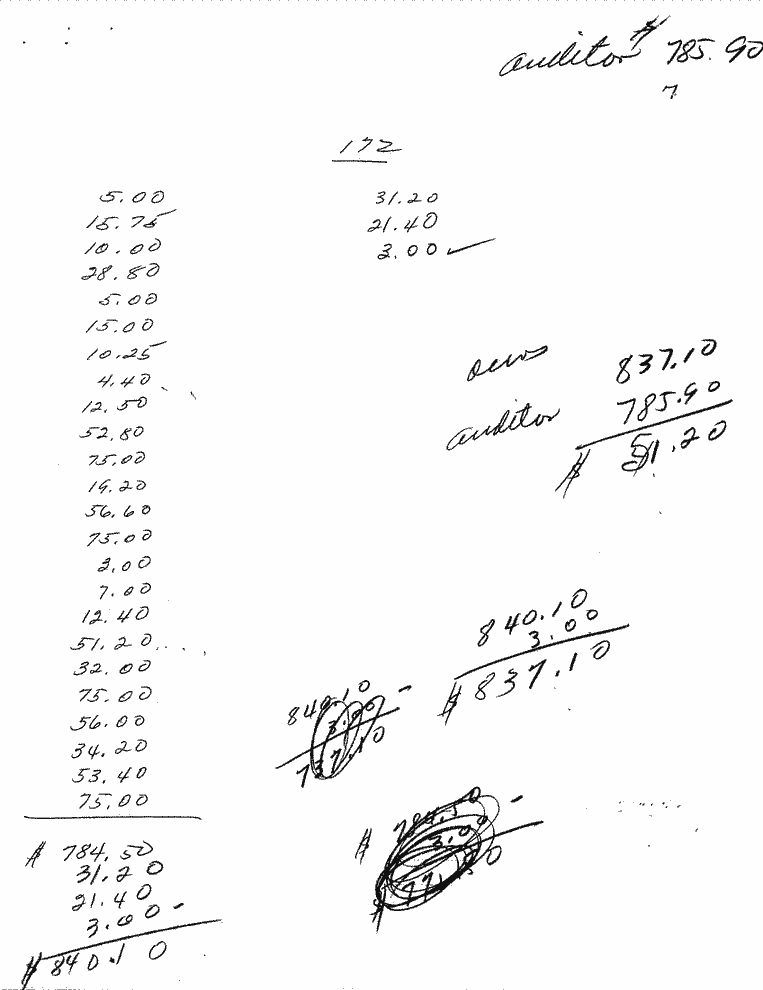 auditor $ 785.90
7
172
5.00
15.75
10.00
28.80
5.00
15.00
10.25
4.40
12.50
52.80
75.00
19.20
56.60
75.00
3.00
7.00
12.40
51.20
32.00
75.00
56.00
34.20
53.40
75.00
$ 784.50
31.20
21.40
3.00 -
$ 840.10
31.20
21.40
3.00 ✓
ours 837.10
auditor 785.90
$ 51.20
840.10
3.00
$ 837.10
840.10 -
3.00
737.10